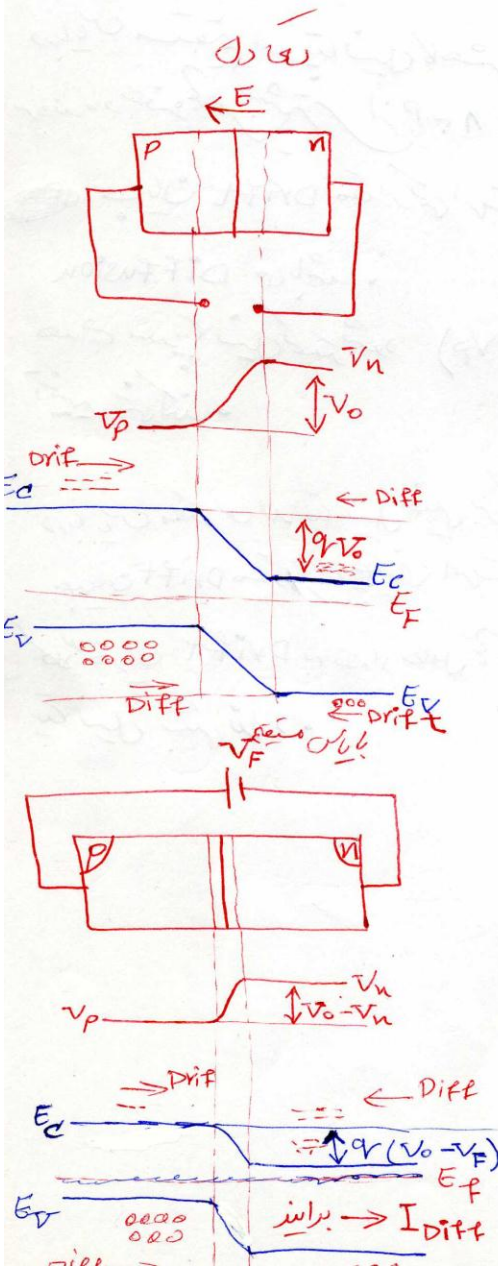 تعادل
E
P n
Vn
V0
Vp
Drif
Ec
← Diff
qV0
Ec
EF
Ev
Diff
Ev
Drift
بایاس مستقیم
VF
P n
Vn
V0-Vn
Vp
Drif
← Diff
Ec
q(V0-VF)
Ef
Ev
برایند → IDiff
Diff